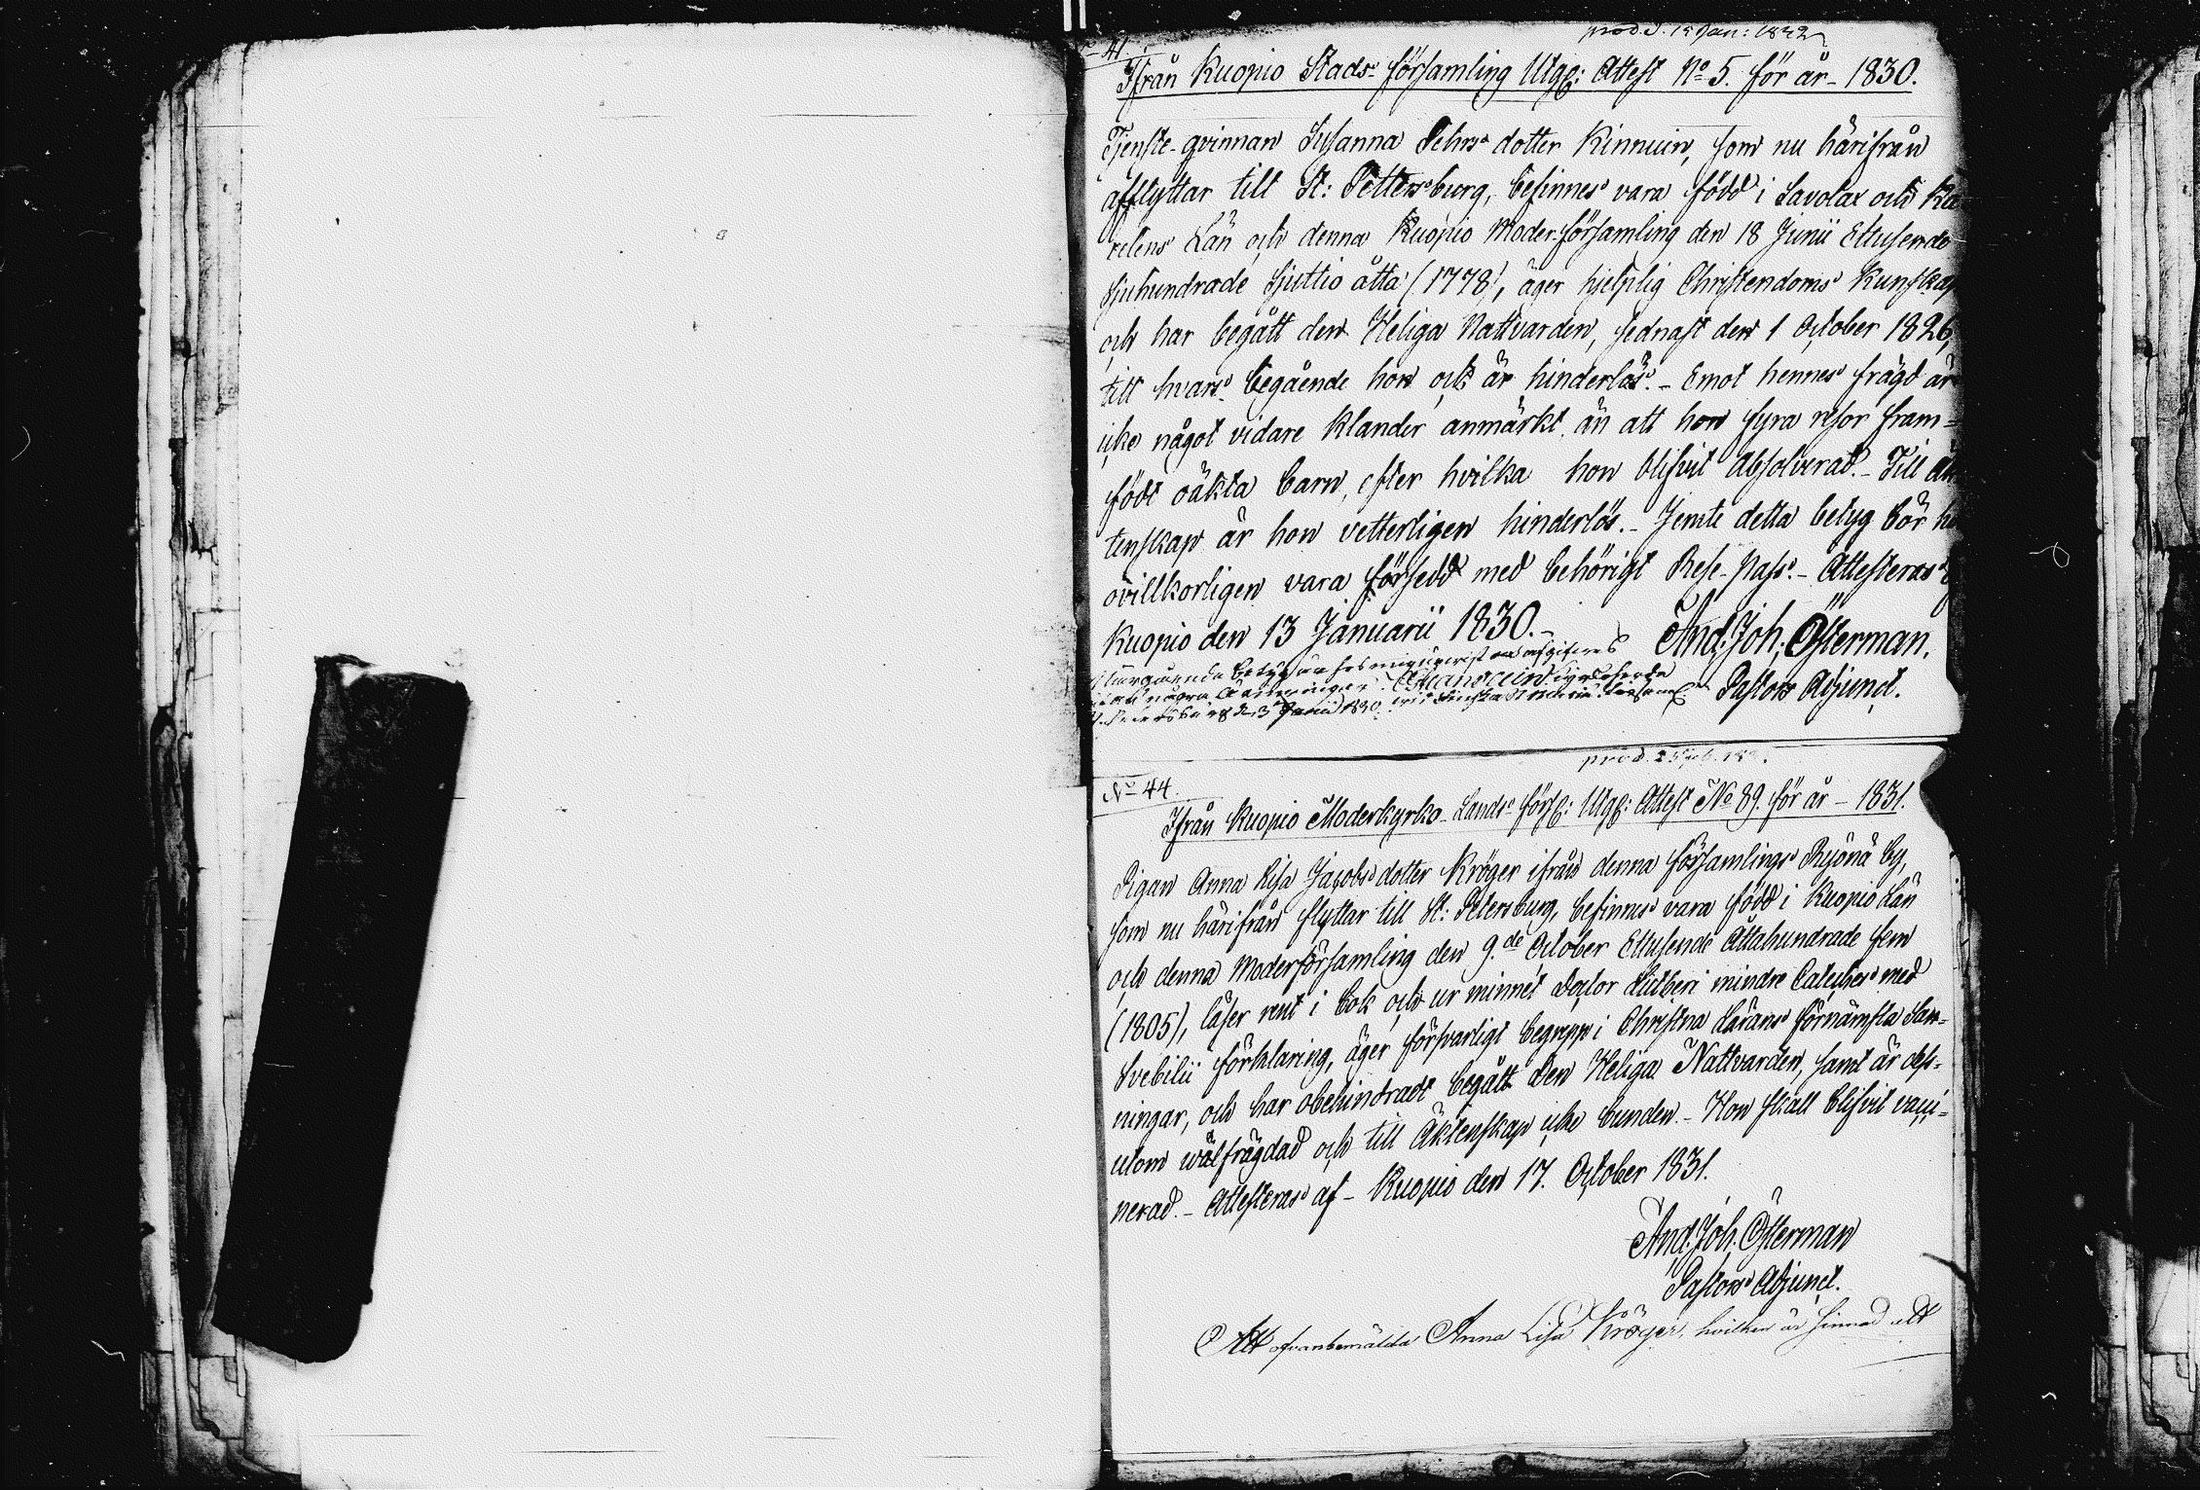 prod. d. 15 Jan: 1832
No 41.
Ifrån Kuopio Stads-församling Utgg: Attest No 5. för år - 1830.
Tjenste-qvinnan Susanna Pehrs dotter Kinnuin, som nu härifrån
afflyttar till St: Pettersburg, befinnes vara född i Savolax och Ka-
relens Län och denna Kuopio Moder-församling den 18 Junii Ettusende
Sjuhundrade Sjuttio åtta (1778), äger hjelplig Christendoms Kunskap
och har begått den Heliga Nattvarden, sednast den 1 October 1826,
till hvars begående hon ock är hinderlös. - Emot hennes frägd är
icke något vidare klander anmärkt än att hon fyra resor fram-
födt oäkta barn, efter hvilka hon blifvit Absolverad. - Till Äk
tenskap är hon vetterligen hinderlös. - Jemte detta betyg bör h
ovillkorligen vara försedd med behörigt Rese-Pass. - Attesteras
Kuopio den 13 Januarii 1830. - And. Joh. Österman.
Pastors Adjunct.
betyg
några
1830
prod. 25 Feb.
No 44.
Ifrån Kuopio Moderkyrko-Lands-förs: Utgg: Attest No 89. för år - 1831.
Pigan Anna Lisa Jacobs dotter Kröger ifrån denna församlings by,
som nu härifrån flyttar till St: Petersburg, befinnes vara född i Kuopio Län
och denna Moderförsamling den 9.de October Ettusende Åttahundrade fem
(1805), läser rent i bok och ur minnet Doctor Lutheri mindre Cateches med
Svebilii förklaring, äger försvarligt begrepp i Christna Lärans förnämsta San-
ningar, och har obehindradt begått Den Heliga Nattvarden, samt är dess-
utom wälfrägdad och till Äktenskap icke bunden. - Hon skall blifvit vacci-
nerad. - Attesteras af - Kuopio den 17. October 1831.
And. Joh. Österman
Pastors Adjunct.
Att ofvanbemälda Anna Lisa Kröger, hvilken är sinnad att